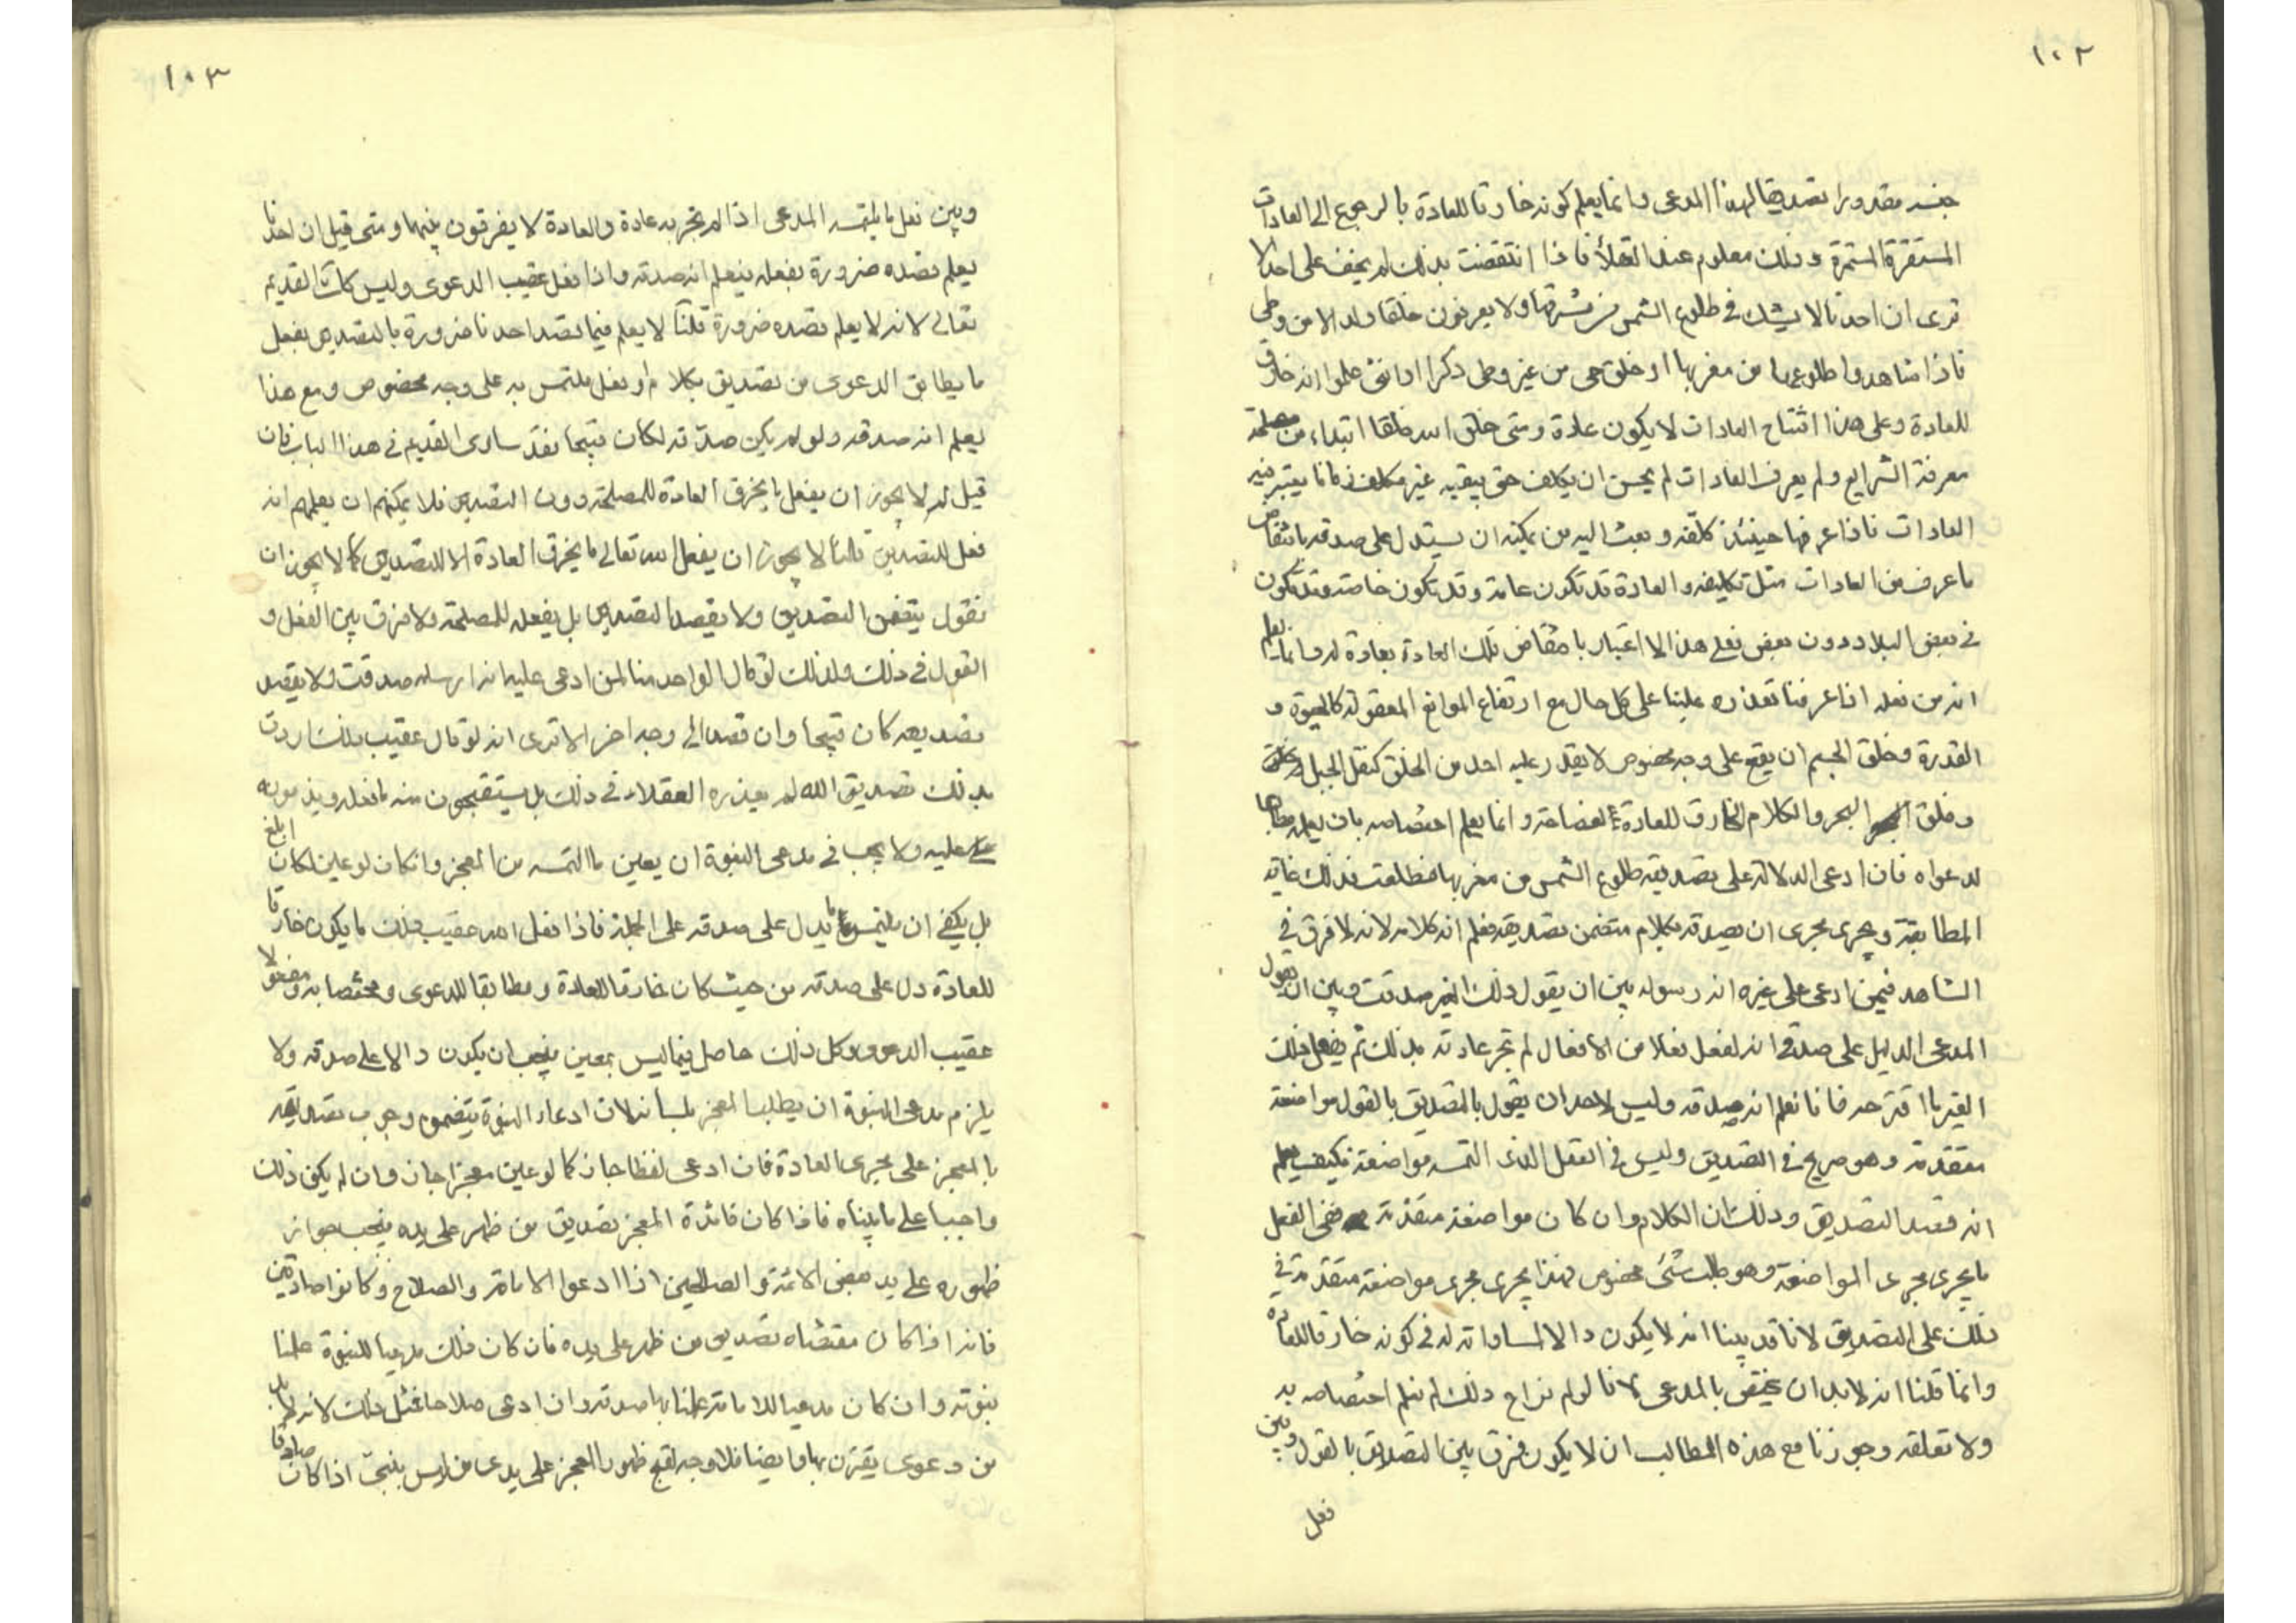 ١٠٢
جنسه مقدورا تصديقا لهذا المدعى وانما يعلم كونه خارقا للعادة بالرجوع الى العادات
المستقرة المستمرة وذلك معلوم عند العقلاء فاذا انتقضت بذلك لم يخف على احد الا
ترى ان احدنا لا يشك في طلوع الشمس من مشرقها ولا يعرفون خلقا ولد الا من وطى
فاذا شاهدوا طلوعها من مغربها او خلق حى من غير وطى ذكرا او انثى علموا انه خارق
للعادة وعلى هذا افتتاح العادات لا يكون عادة ومتى خلق الله خلقا ابتداء من مصلحته
معرفة الشرايع ولم يعرف العادات لم يحسن ان يكلف حتى يبقيه غير مكلف زمانا يعتبر فيه
العادات فاذا عرفها حينئذ كلفه وبعث اليه من يمكنه ان يستدل على صدقه بانتقاض
ما عرف من العادات مثل تكليفه والعادة قد تكون عامة وقد تكون خاصة وقد تكون
في بعض البلاد دون بعض فعلى هذا الاعتبار بانتقاض تلك العادة بعادة له وانما يعلم
انه من فعله اذا عرفنا تعذره علينا على كل حال مع ارتفاع الموانع المعقولة كالحيوة و
القدرة وخلق الجسم ان يقع على وجه مخصوص لا يقدر عليه احد من الخلق كنقل الجبل
وفلق البحر والكلام الخارق للعادة بفصاحته وانما يعلم اختصاصه بان يعلم مطابقا
لدعواه فان ادعى الدلالة على تصديقه طلوع الشمس من مغربها فطلعت فذلك غاية
المطابقة ويجرى مجرى ان يصدقه بكلام متضمن تصديقه فعلم انه كلامه لانه لا فرق في
الشاهد فيمن ادعى على غيره انه رسوله بين ان يقول ذلك الغير صدقت وبين ان يقول
المدعى الدليل على صدقى انه لفعل فعلا من الافعال لم تجر عادته بذلك ثم يفعل ذلك
الغير ما اقترحه فانا نعلم انه صدقه وليس لاحد ان يقول بالتصديق بالقول مواضعة
متقدمة وهو صريح في التصديق وليس في الفعل الذى التمسه مواضعة فكيف يعلم
انه قصد التصديق وذلك ان الكلام وان كان مواضعة متقدمة ففى الفعل
ما يجرى مجرى المواضعة وهو طلب شئ مخصوص فهذا يجرى مجرى مواضعة متقدمة في
ذلك على التصديق لانا قد بينا انه لا يكون دالا لمساواته له في كونه خارقا للعادة
وانما قلنا انه لا بد ان يختص بالمدعى لانا لو لم نراع ذلك لم نعلم اختصاصه به
ولا تعلقه وجوزنا مع هذه المطالب ان لا يكون فرق بين التصديق بالقول وبين
فعل
١٠٣
وبين فعل ما يلتمسه المدعى اذا لم تجر به عادة والعادة لا يفرقون بينهما ومتى قيل ان احدنا
يعلم قصده ضرورة بفعله فيعلم انه صدقه واذا فعل عقيب الدعوى وليس كذلك القديم
تعالى لانه لا يعلم قصده ضرورة قلنا لا يعلم فيما قصد احدنا ضرورة بالتصديق بفعل
ما يطابق الدعوى من تصديق بكلام او فعل يلتمس به على وجه مخصوص ومع هذا
يعلم انه صدقه ولو لم يكن صدقه لكان قبيحا فقد ساوى القديم في هذا الباب فان
قيل لم لا يجوز ان يفعل ما يخرق العادة للمصلحة دون التصديق فلا يمكنهم ان يعلمهم انه
فعل للتصديق قلنا لا يجوز ان يفعل الله تعالى ما يخرق العادة الا للتصديق كما لا يجوز ان
نقول يتضمن التصديق ولا يقصد التصديق بل يفعله للمصلحة ولا فرق بين الفعل و
القول في ذلك ولذلك لو قال الواحد منا لمن ادعى عليه انه ارسله صدقت ولا يقصد
تصديقه كان قبيحا وان قصد الى وجه اخر الا ترى انه لو قال عقيب ذلك اردت
بذلك تصديق الله لم يعذره العقلاء في ذلك بل يستقبحون منه ما فعله ويذمونه
عليه ولا يجب في مدعى النبوة ان يعين ما التمسه من المعجز وان كان لو عين لكان ابلغ
بل يكفى ان يلتمس ما يدل على صدقه على الجملة فاذا فعل الله عقيب ذلك ما يكون خارقا
للعادة دل على صدقه من حيث كان خارقا للعادة ومطابقا للدعوى ومختصا به ومفعولا
عقيب الدعوى وكل ذلك حاصل فيما ليس بمعين فيجب ان يكون دالا على صدقه ولا
يلزم مدعى النبوة ان يطلب المعجز بلسانه لان ادعاء النبوة يتضمن وجوب تصديقه
بالمعجز على مجرى العادة فان ادعى لفظا جاز كما لو عين معجزا جاز وان لم يكن ذلك
واجبا على ما بيناه فاذا كان فائدة المعجز تصديق من ظهر على يده فيجب جواز
ظهوره على يد بعض الائمة والصالحين اذا ادعوا الامامة والصلاح وكانوا صادقين
فانه اذا كان مقتضاه تصديق من ظهر على يده فان كان ذلك مدعيا للنبوة علمنا
نبوته وان كان مدعيا للامامة علمنا بها صدقه وان ادعى صلاحا فمثل ذلك لانه لا بد
من دعوى يقترن بها وايضا فلا وجه لقبح ظهور المعجز على يدى من ليس بنبى اذا كان صادقا